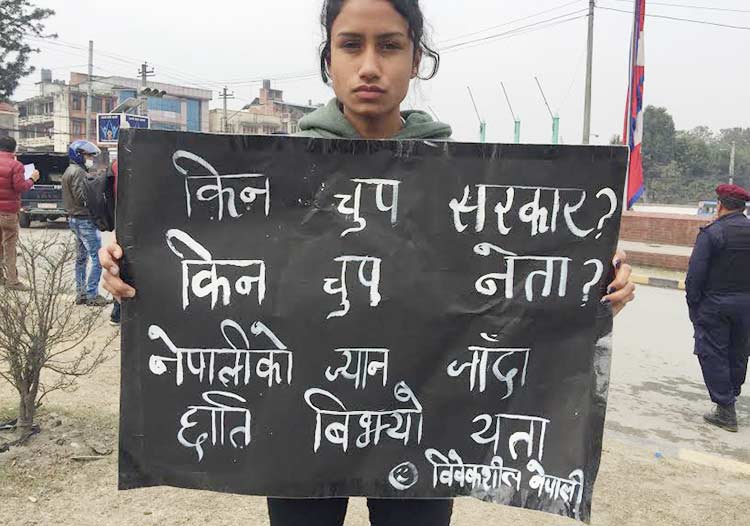 किन चुप सरकार?
किन चुप नेता?
नेपालीको ज्यान जाँदा
छाति बिझ्यो यता
विवेकशील नेपाली